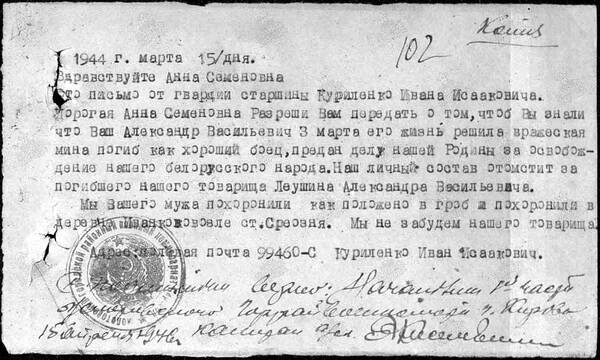 Копия
102
1944 г. марта 15/дня.
Здравствуйте Анна Семеновна
Это письмо от гвардии старшины Куриленко Ивана Исааковича.
Дорогая Анна Семеновна Разреши Вам передать о том, чтоб Вы знали
что Ваш Александр Васильевич 3 марта его жизнь решила вражеская
мина погиб как хороший боец, предан делу нашей Родины за освобож-
дение нашего белорусского народа. Наш личный состав отомстит за
погибшего нашего товарища Леушина Александра Васильевича.
Мы Вашего мужа похоронили как положено в гроб и похоронили в
деревне ст. Мы не забудем нашего товарища
Адрес: полевая почта 99460-С Куриленко Иван Исаакович.
С подлинным верно: Начальник 1й части
г. Кирова
1946 капитан